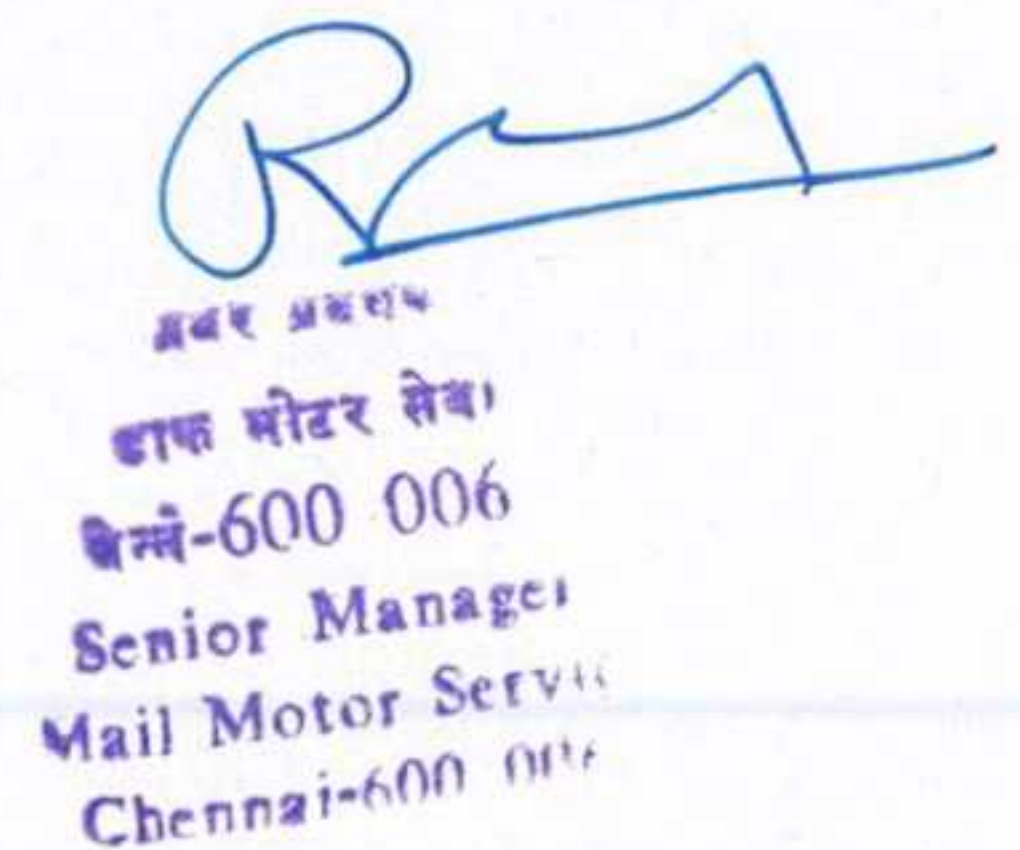 डाक मोटर सेवा
चेन्नै-600 006
Senior Manager
Mail Motor Service
Chennai-600 006